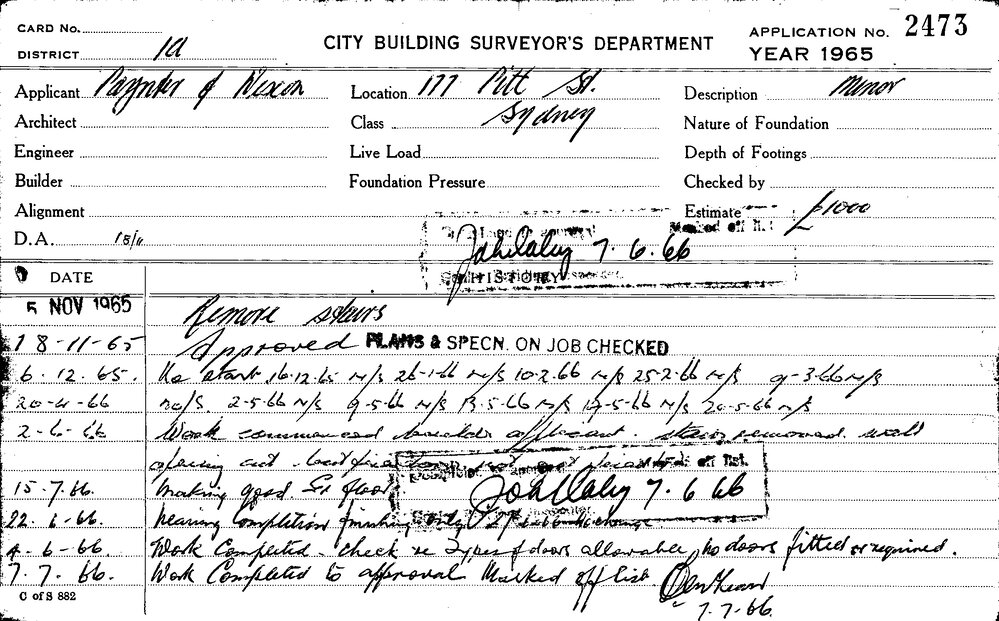 CARD No.
DISTRICT 1a
CITY BUILDING SURVEYOR'S DEPARTMENT
APPLICATION No. 2473
YEAR 1965
Applicant Paynter & Dixon
Location 177 Pitt St. Sydney
Description Minor
Architect
Class
Nature of Foundation
Engineer
Live Load
Depth of Footings
Builder
Foundation Pressure
Checked by
Alignment
Estimate £1000
D.A.
Marked off list
7.6.66
DATE
HISTORY
5 NOV 1965 Remove stairs
18-11-65 Approved PLANS & SPECN. ON JOB CHECKED
6.12.65. No start 16.12.65 N/S 26-1-66 N/S 10-2.66 N/S 25-2.66 N/S 9-3-66 N/S
20-4-66 N/S 2-5-66 N/S 9-5-66 N/S 13-5-66 N/S 17-5-66 N/S 20-5-66 N/S
2-6-66 Work commenced stairs removed. well
opening
off list.
15.7.66. making good floor
7.6.66
22.6-66. nearing Completion finishing only 27-6-66 No change
4-6-66. Work Completed - check re types of doors allowable, no doors fitted or required.
7.7.66. Work Completed to approval Marked off list
7.7.66
C of S 882